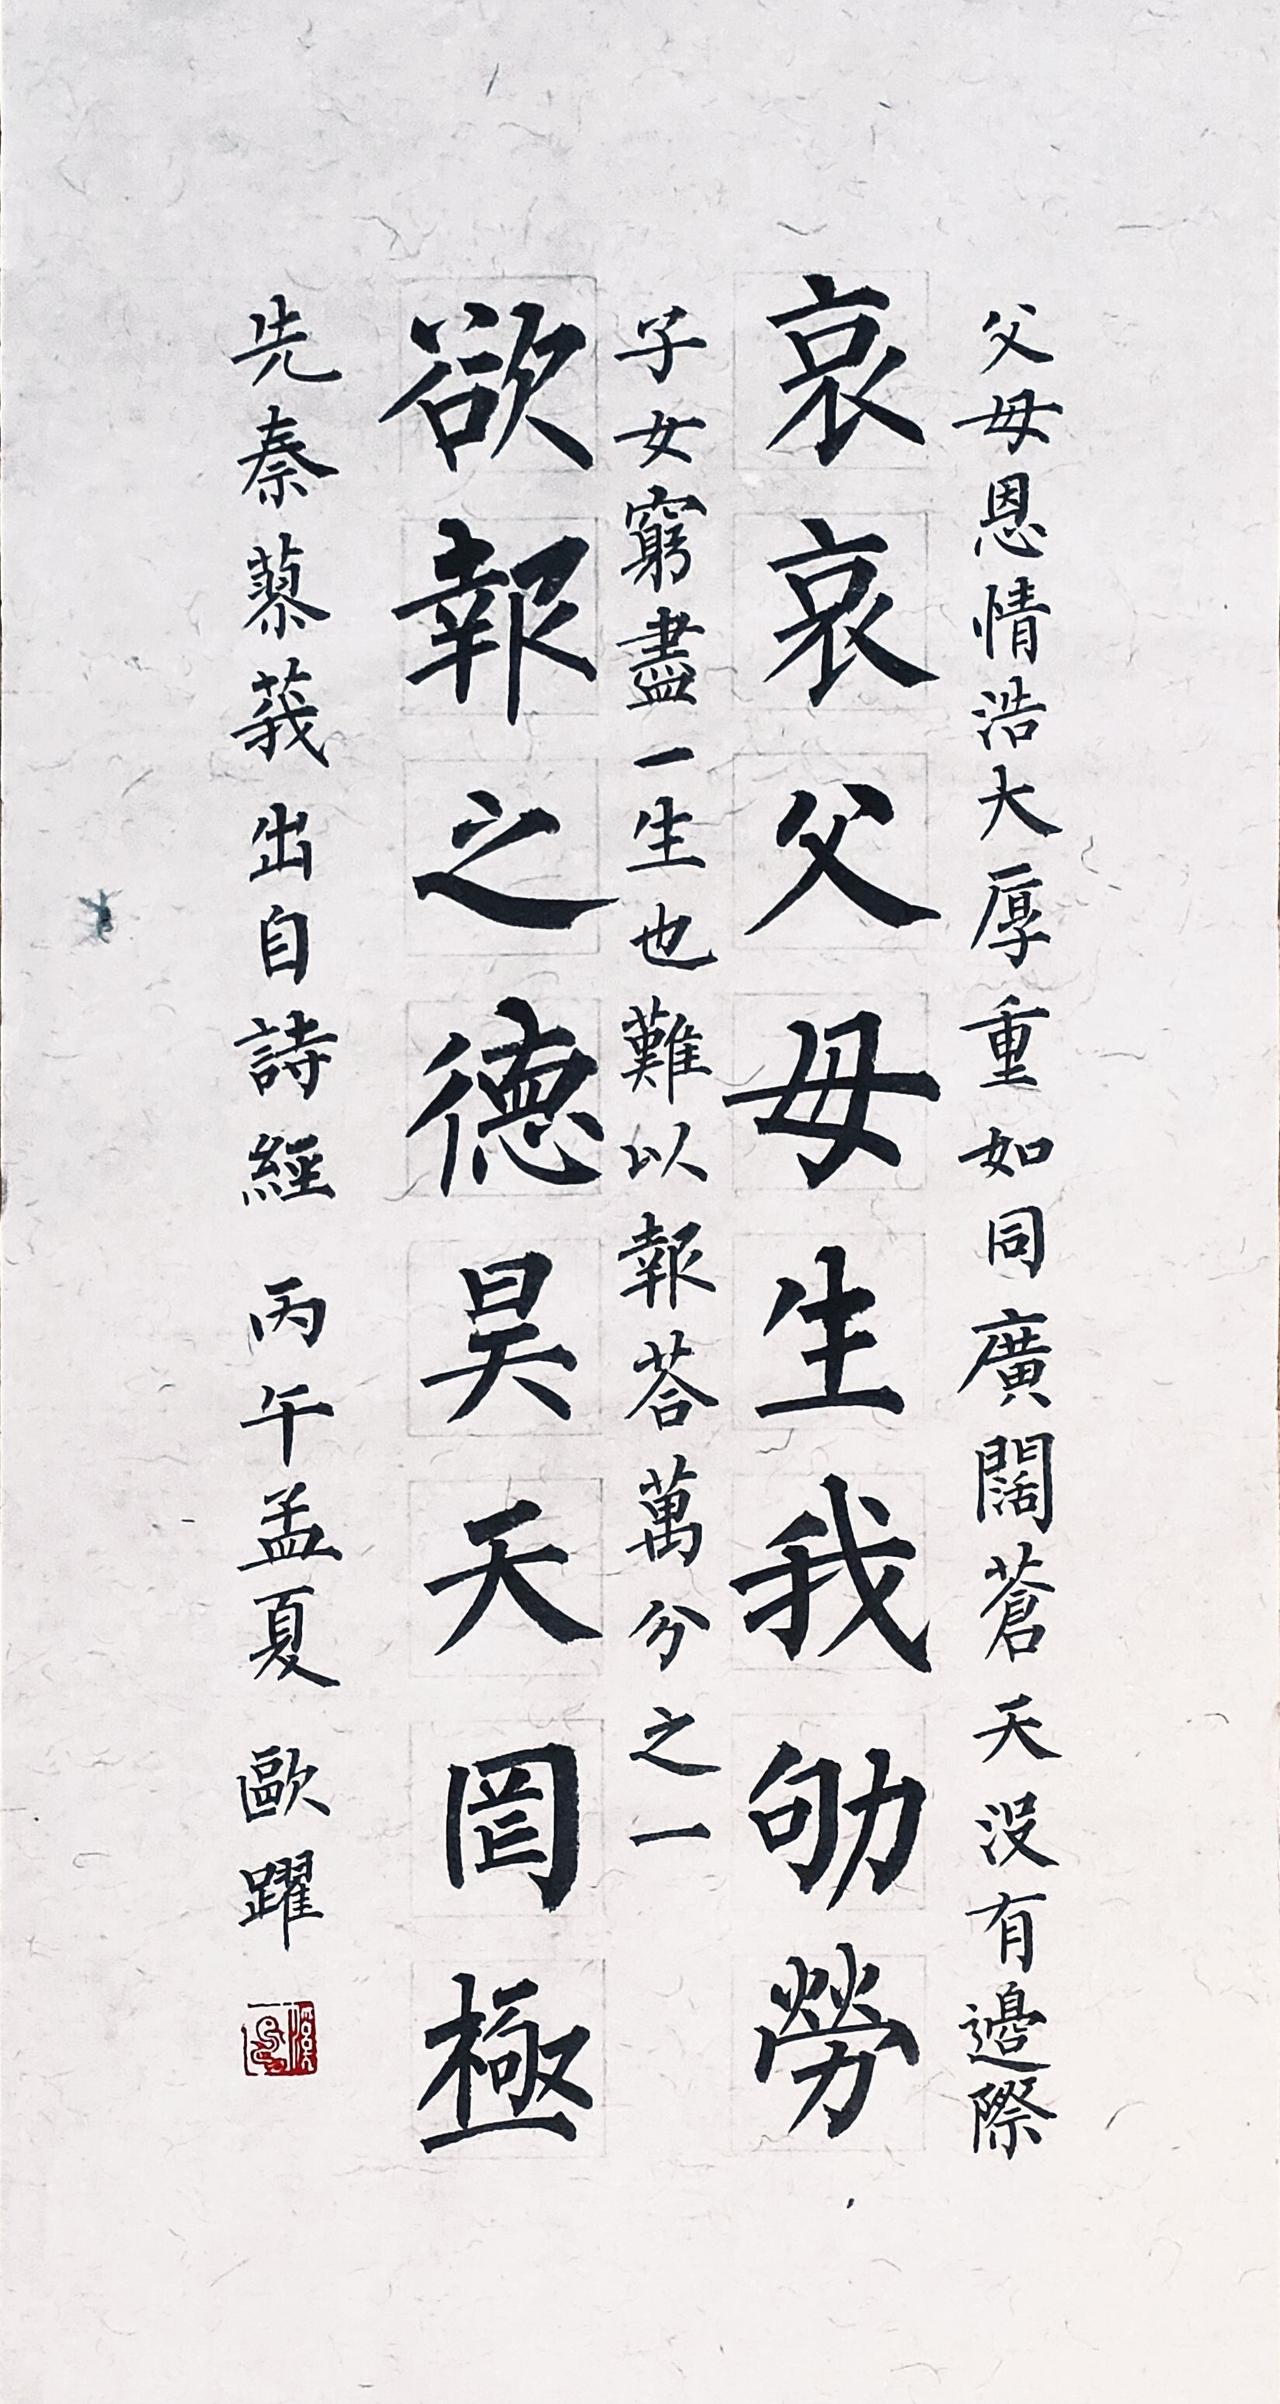 父母恩情浩大厚重如同廣闊蒼天没有邊際
哀哀父母生我劬勞
子女窮盡一生也難以報荅萬分之一
欲報之德昊天罔極
先秦蓼莪出自詩經 丙午孟夏 歐躍